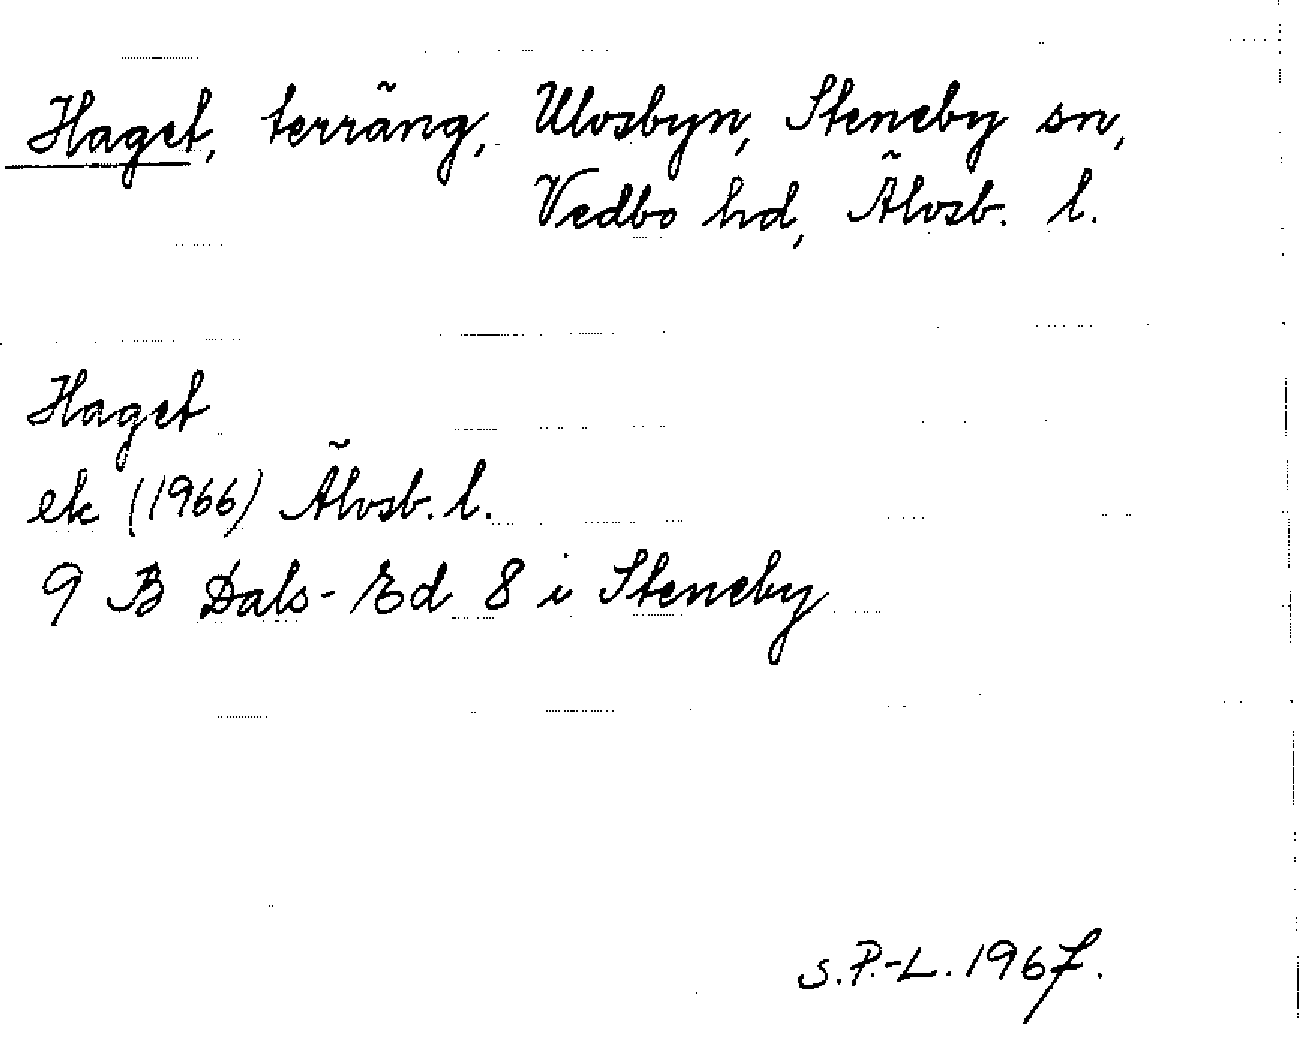 Haget, terräng, Ulvsbyn, Steneby sn,
Vedbo hd, Älvsb. l.
Haget
ek (1966) Älvsb. l.
9 B Dals-Ed 8 i Steneby
S.P.-L. 1967.